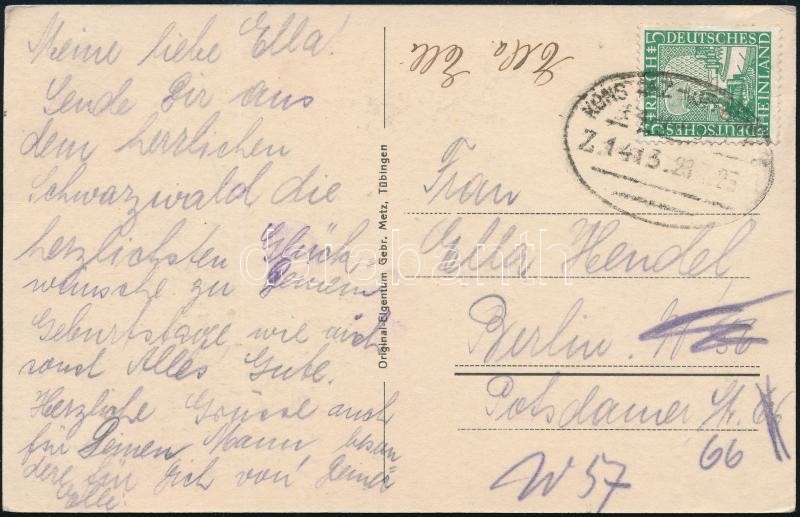 Meine liebe Ella!
Sende Dir aus
dem herrlichen
Schwarzwald die
herzlichsten Glück-
wünsche zu Deinem
Geburtstage wie auch
sonst Alles Gute.
Herzliche Grüsse auch
für Deinen Mann beson
dere für Dich von Deiner
Elli.
Original-Eigentum Gebr. Metz, Tübingen
Ella. Elli
DEUTSCHES
REICH
5
5
RHEINLAND
DEUTSCHES
Z.1413.
Frau
Ella Hendel
Berlin. W
Potsdamer Str.
66
W 57
darabanth